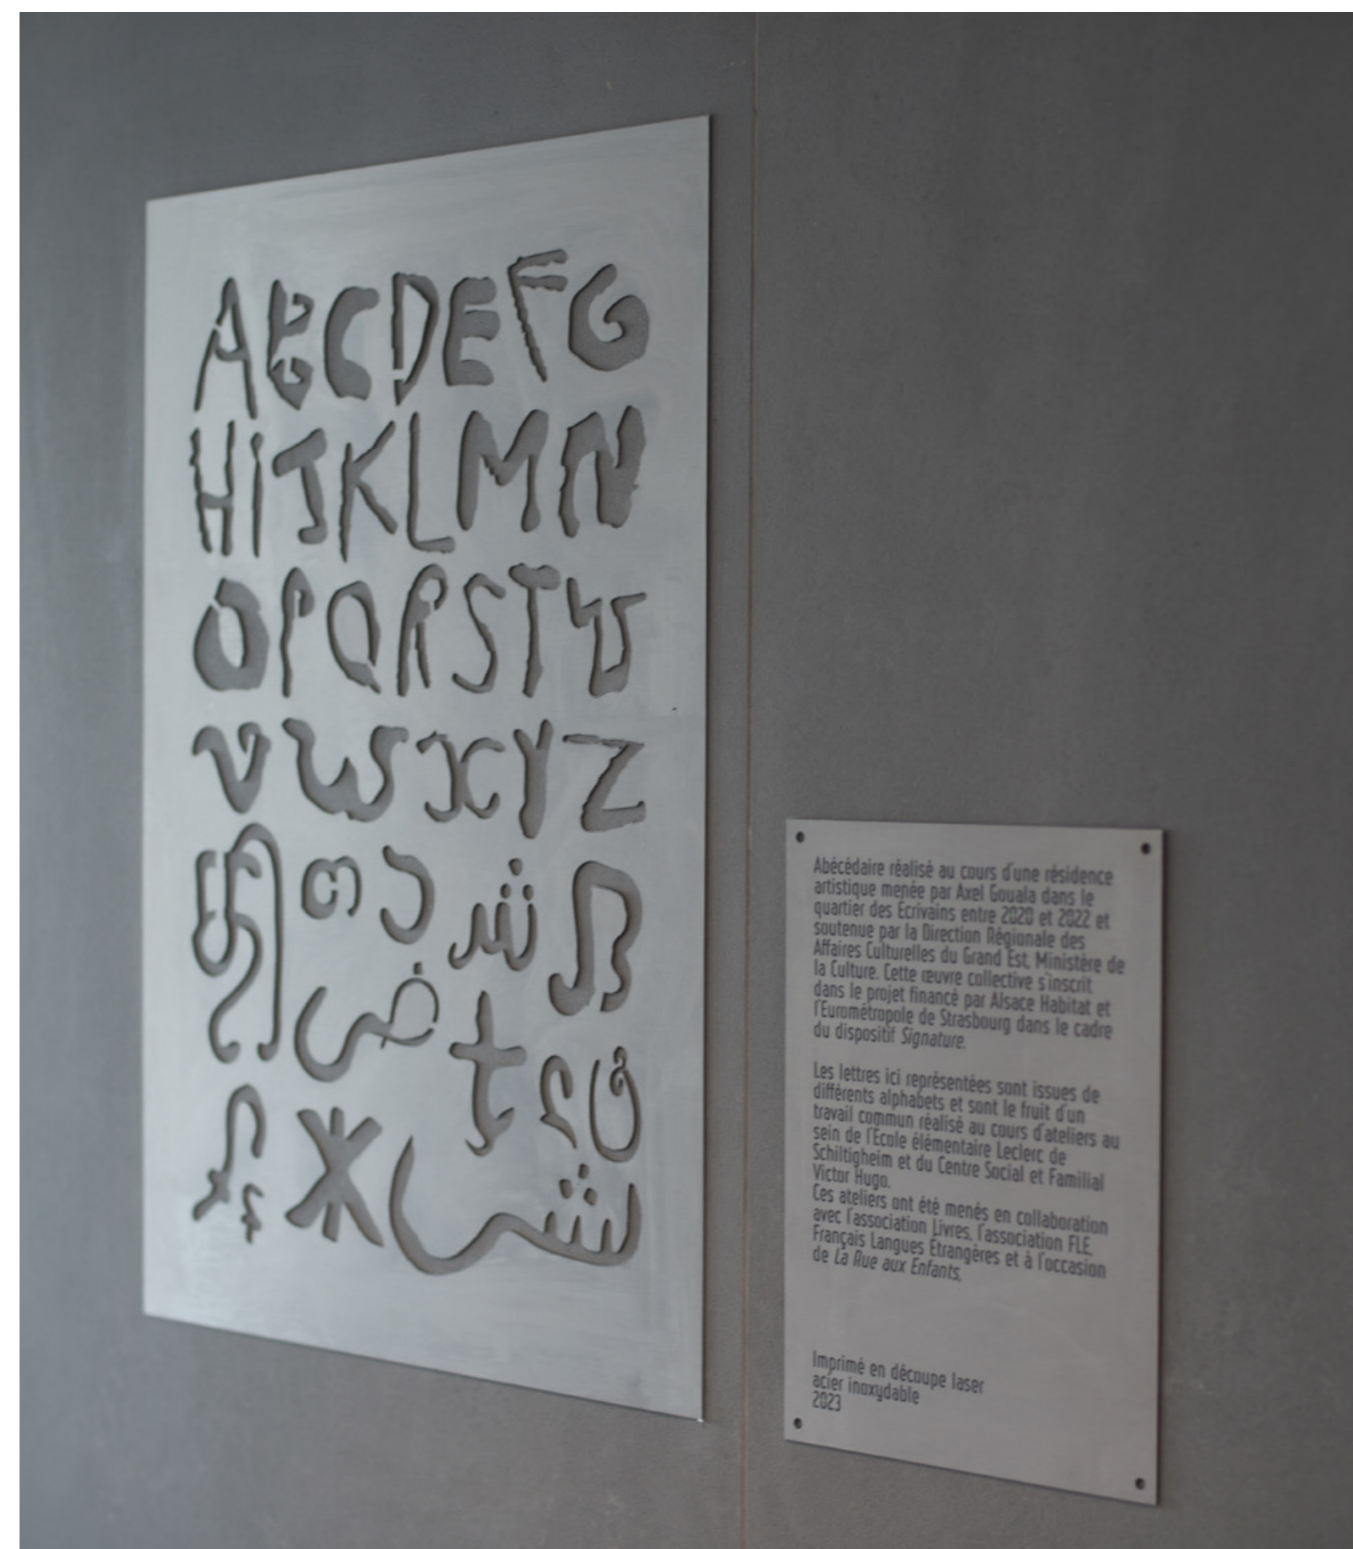 ABCDEFG
HIJKLMN
OPQRSTU
VWXYZ
Ж
Abécédaire réalisé au cours d'une résidence
artistique menée par Axel Gouala dans le
quartier des Écrivains entre 2020 et 2022 et
soutenue par la Direction Régionale des
Affaires Culturelles du Grand Est, Ministère de
la Culture. Cette œuvre collective s'inscrit
dans le projet financé par Alsace Habitat et
l'Eurométropole de Strasbourg dans le cadre
du dispositif Signature.
Les lettres ici représentées sont issues de
différents alphabets et sont le fruit d'un
travail commun réalisé au cours d'ateliers au
sein de l'École élémentaire Leclerc de
Schiltigheim et du Centre Social et Familial
Victor Hugo.
Ces ateliers ont été menés en collaboration
avec l'association Livres, l'association FLE,
Français Langues Étrangères et à l'occasion
de La Rue aux Enfants,
Imprimé en découpe laser
acier inoxydable
2023